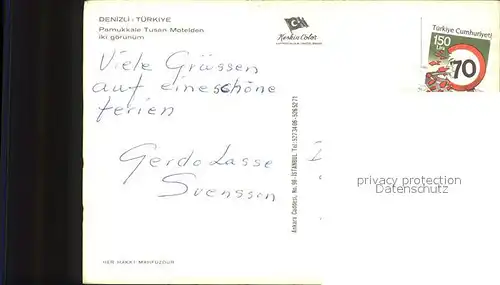 DENİZLİ - TÜRKİYE
Pamukkale Tusan Motelden
iki görünüm
Keskin Color
Türkiye Cumhuriyeti
150
Lira
70
Viele Grüssen
auf eine schöne
ferien
Gerdo Lasse
Svensson
Ankara Caddesi, No. 98 - İSTANBUL Tel: 5273408 - 5265271
privacy protection
Datenschutz
HER HAKKI MAHFUZDUR